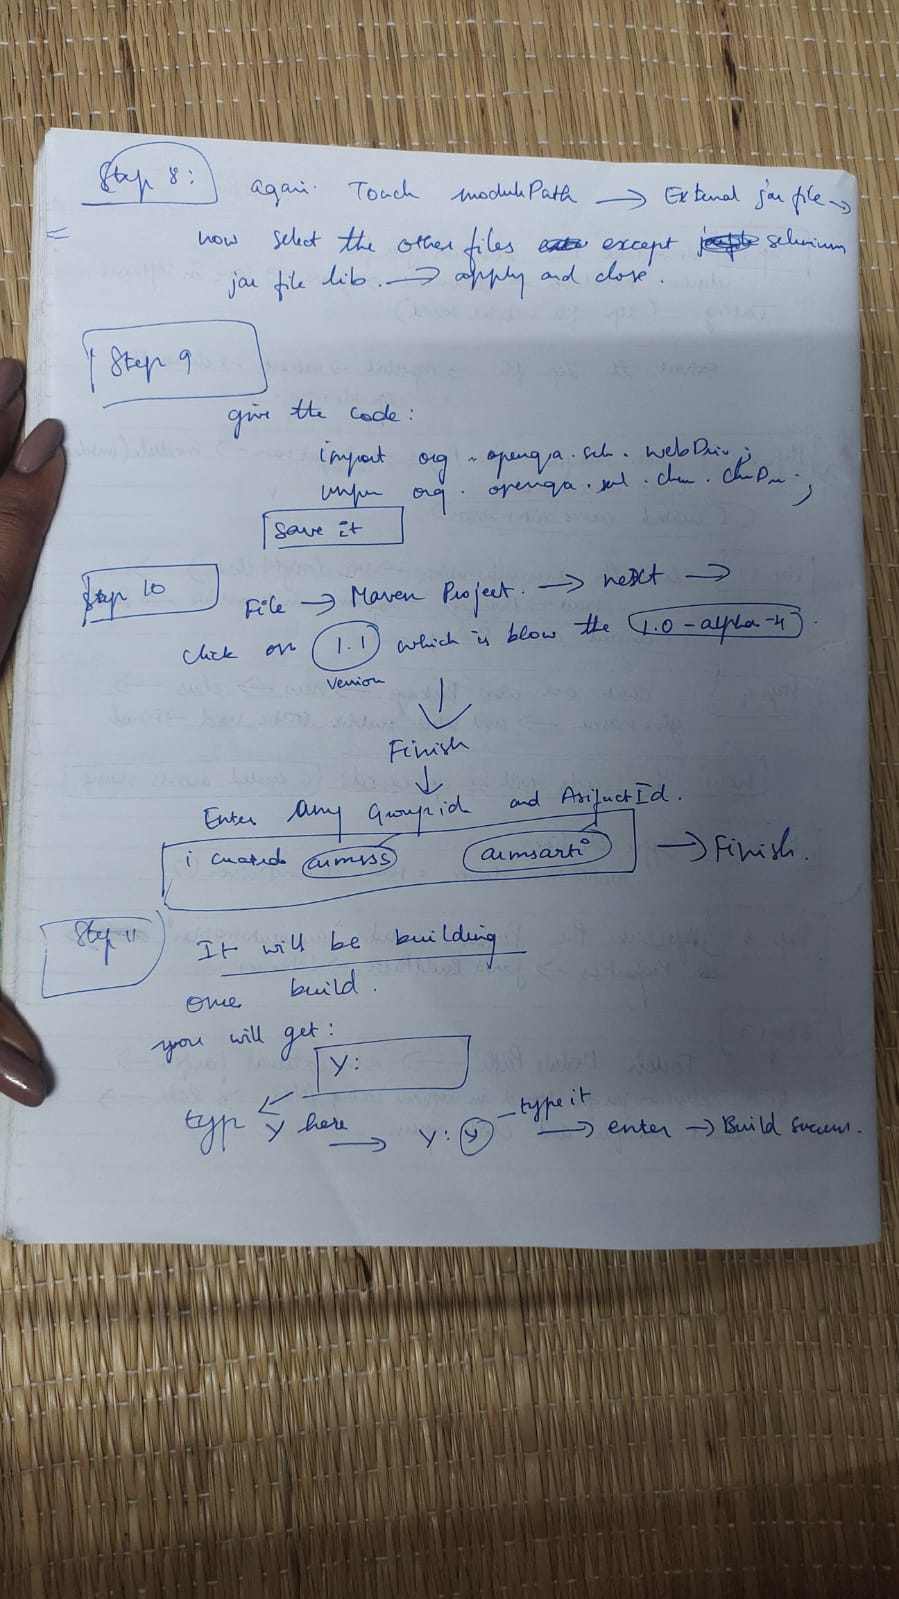 Step 8: again Touch modulePath → External jar file →
now select the other files except selenium
jar file lib. → apply and close.
Step 9
give the code:
import org . openqa . sele . WebDriv ;
org . openqa . sel . chro . ;
Save it
Step 10 File → Maven Project. → next →
click on 1.1 which is blow the 1.0-alpha-4.
version
Finish
Enter any Groupid and ArtifactId.
i created → Finish.
Step 11 It will be building
once build.
you will get:
Y:
typ y here → Y: y - type it → enter → Build success.